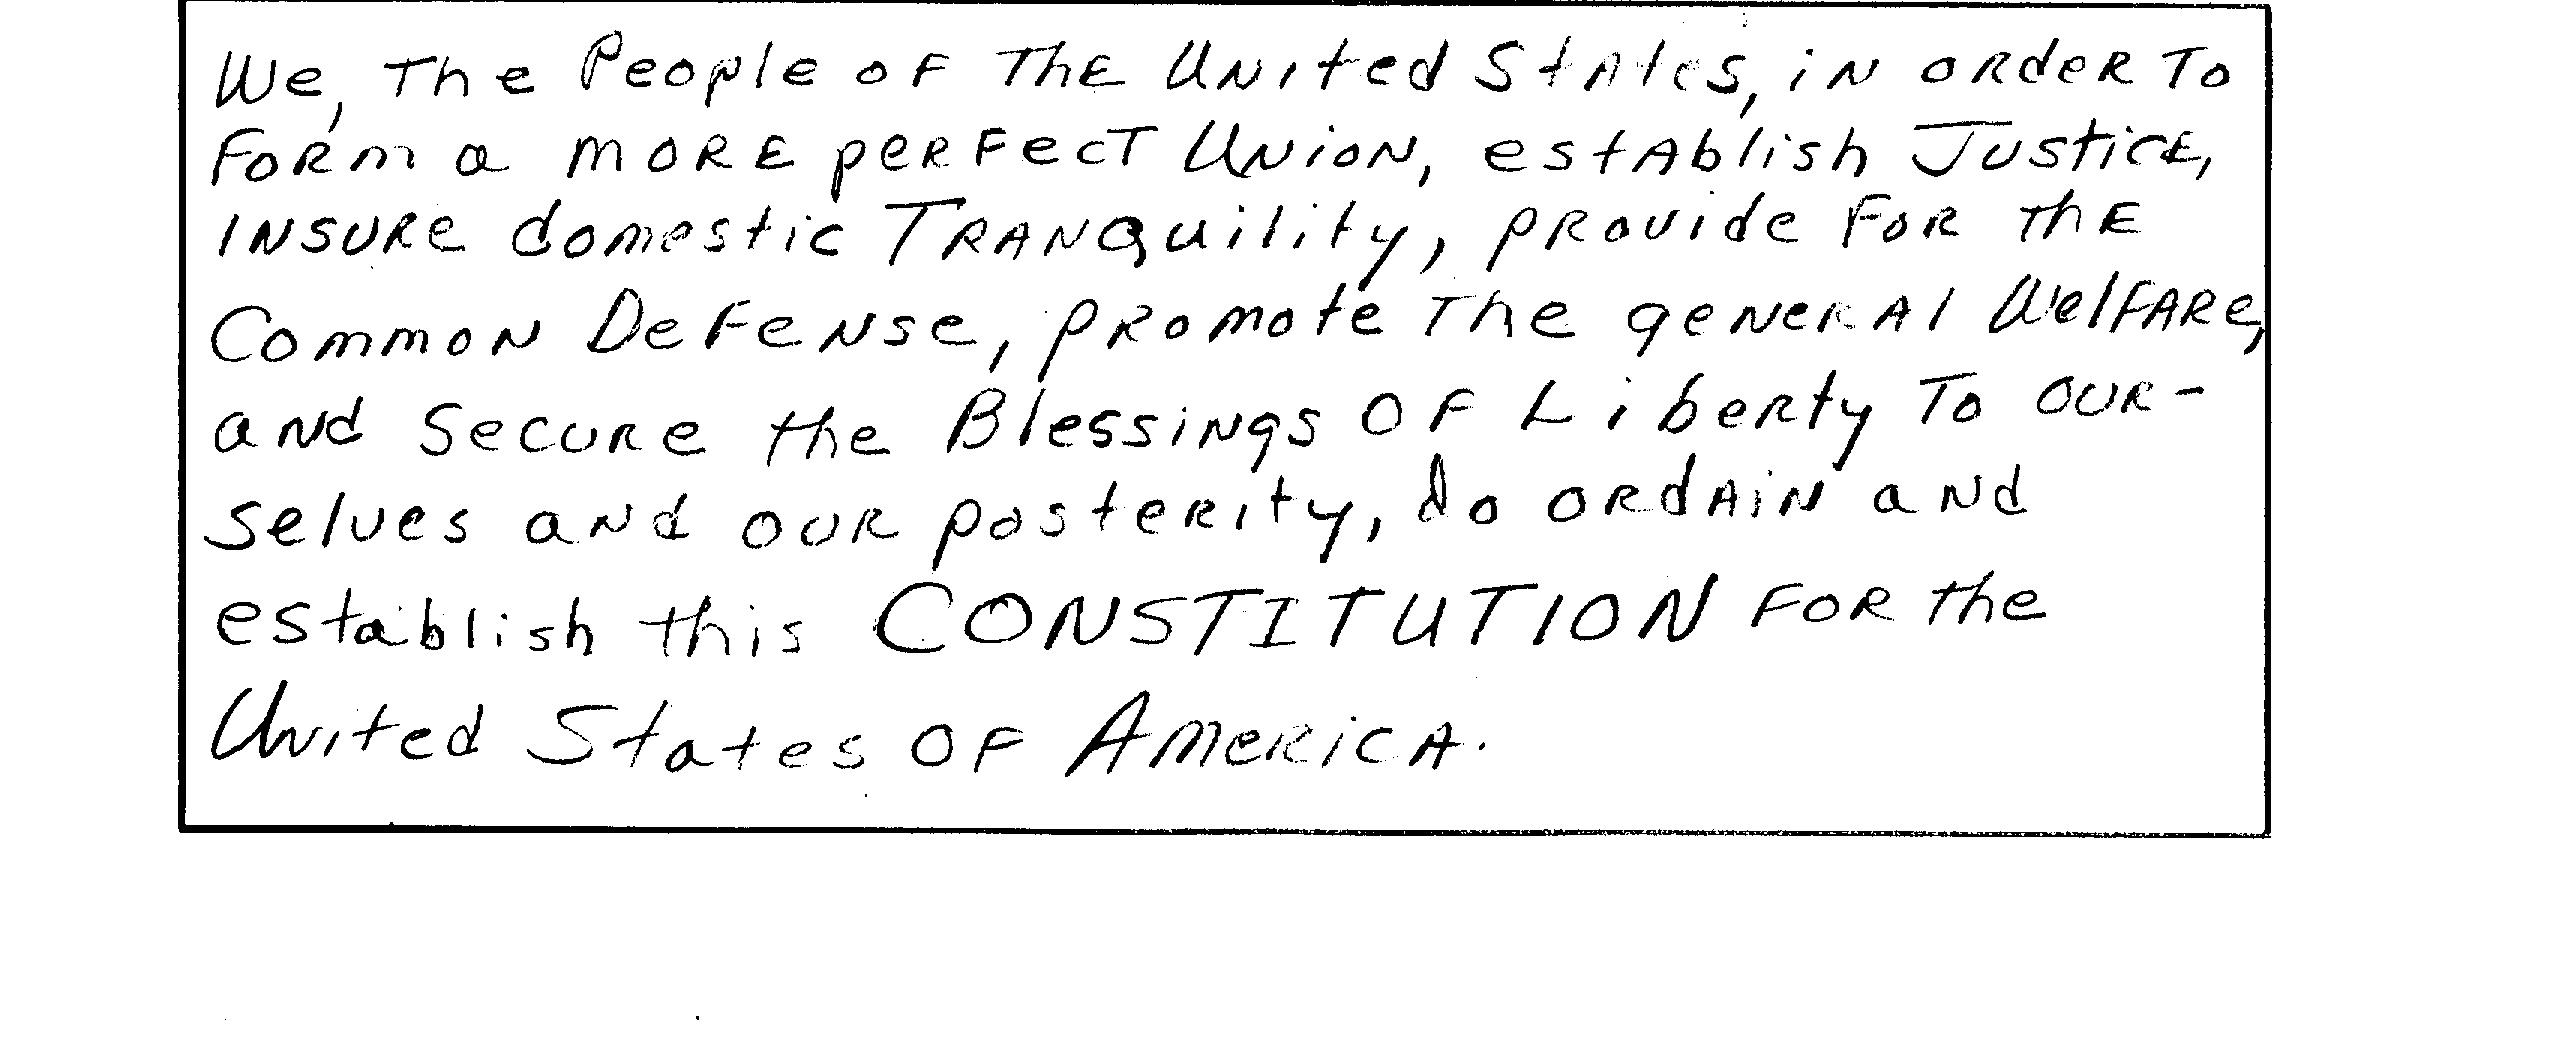 We, The People of The United States, in order To
form a more perfect Union, establish Justice,
insure domestic Tranquility, provide for the
Common Defense, promote The general Welfare,
and secure the Blessings of Liberty To our-
selves and our posterity, do ordain and
establish this CONSTITUTION for the
United States of America.